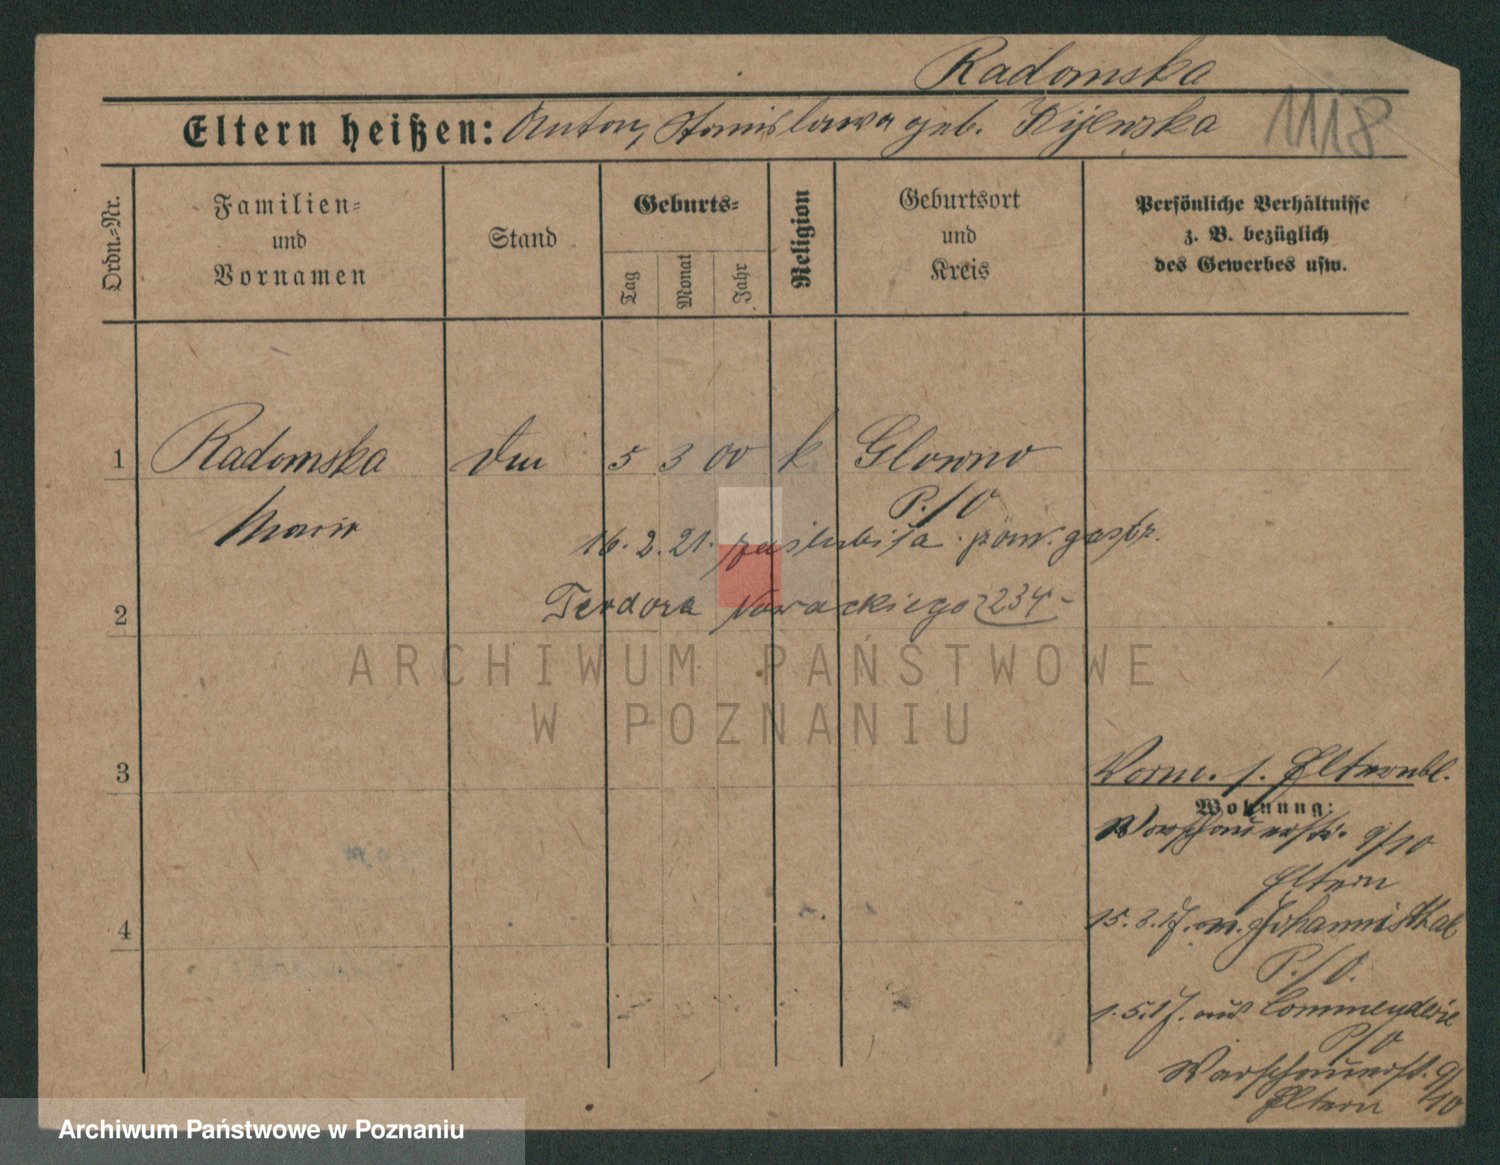 Radomska
Eltern heißen: Anton, Stanislawa geb. Kijewska
1118
Ordn.-Nr.
Familien-
und
Vornamen
Stand
Geburts-
Tag
Monat
Jahr
Religion
Geburtsort
und
Kreis
Persönliche Verhältnisse
z. B. bezüglich
des Gewerbes usw.
1 Radomska 5 3 00 k. Glowno
Maria P./O
16. 2. 21. zaślubiła pom. gastr.
2 Teodora Nowackiego 234
ARCHIWUM PAŃSTWOWE
W POZNANIU
3
Vorm. s. Elternbl.
Wohnung:
Warschauerstr. 9/10
Eltern
4
15. 3. 17. n. Johannisthal
P./O.
1. 5. 17. aus Commenderie
P/O
Warschauerst. 9/10
Eltern
Archiwum Państwowe w Poznaniu